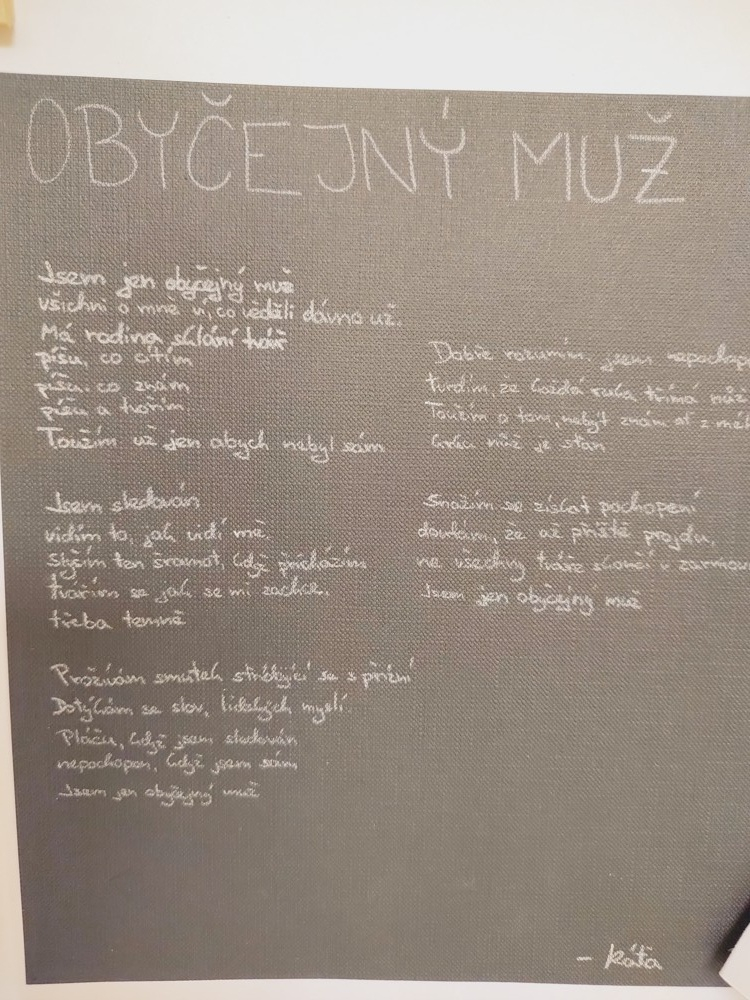 OBYČEJNÝ MUŽ
Jsem jen obyčejný muž
všichni o mně ví, co věděli dávno už.
Má rodina sklání tvář
píšu, co cítím
píšu, co znám
píšu a tvořím.
Toužím už jen abych nebyl sám
Jsem sledován
vidím to, jak vidí mě.
slyším ten šramot, když přicházím
tvářím se jak se mi zachce.
třeba temně
Prožívám smutek střídající se s přízní
Dotýkám se slov, lidských myslí.
Pláču, když jsem sledován
nepochopen, když jsem sám
Jsem jen obyčejný muž
Dobře rozumím. jsem
tvrdím, že každá ruka třímá
Toužím o tom, nebýt znám ať z
nůž je stan
Snažím se získat pochopení
doufám, že až příště projdu,
ne všechny tváře skončí v
Jsem jen obyčejný muž
- Káťa